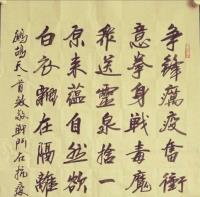 争鋒癘疫奮衝
意拳身戰毒魔
送靈泉捨一
原来蕴自然欲
白衣翻在隔離
鷓鴣天一首致敬戰鬥在抗疫